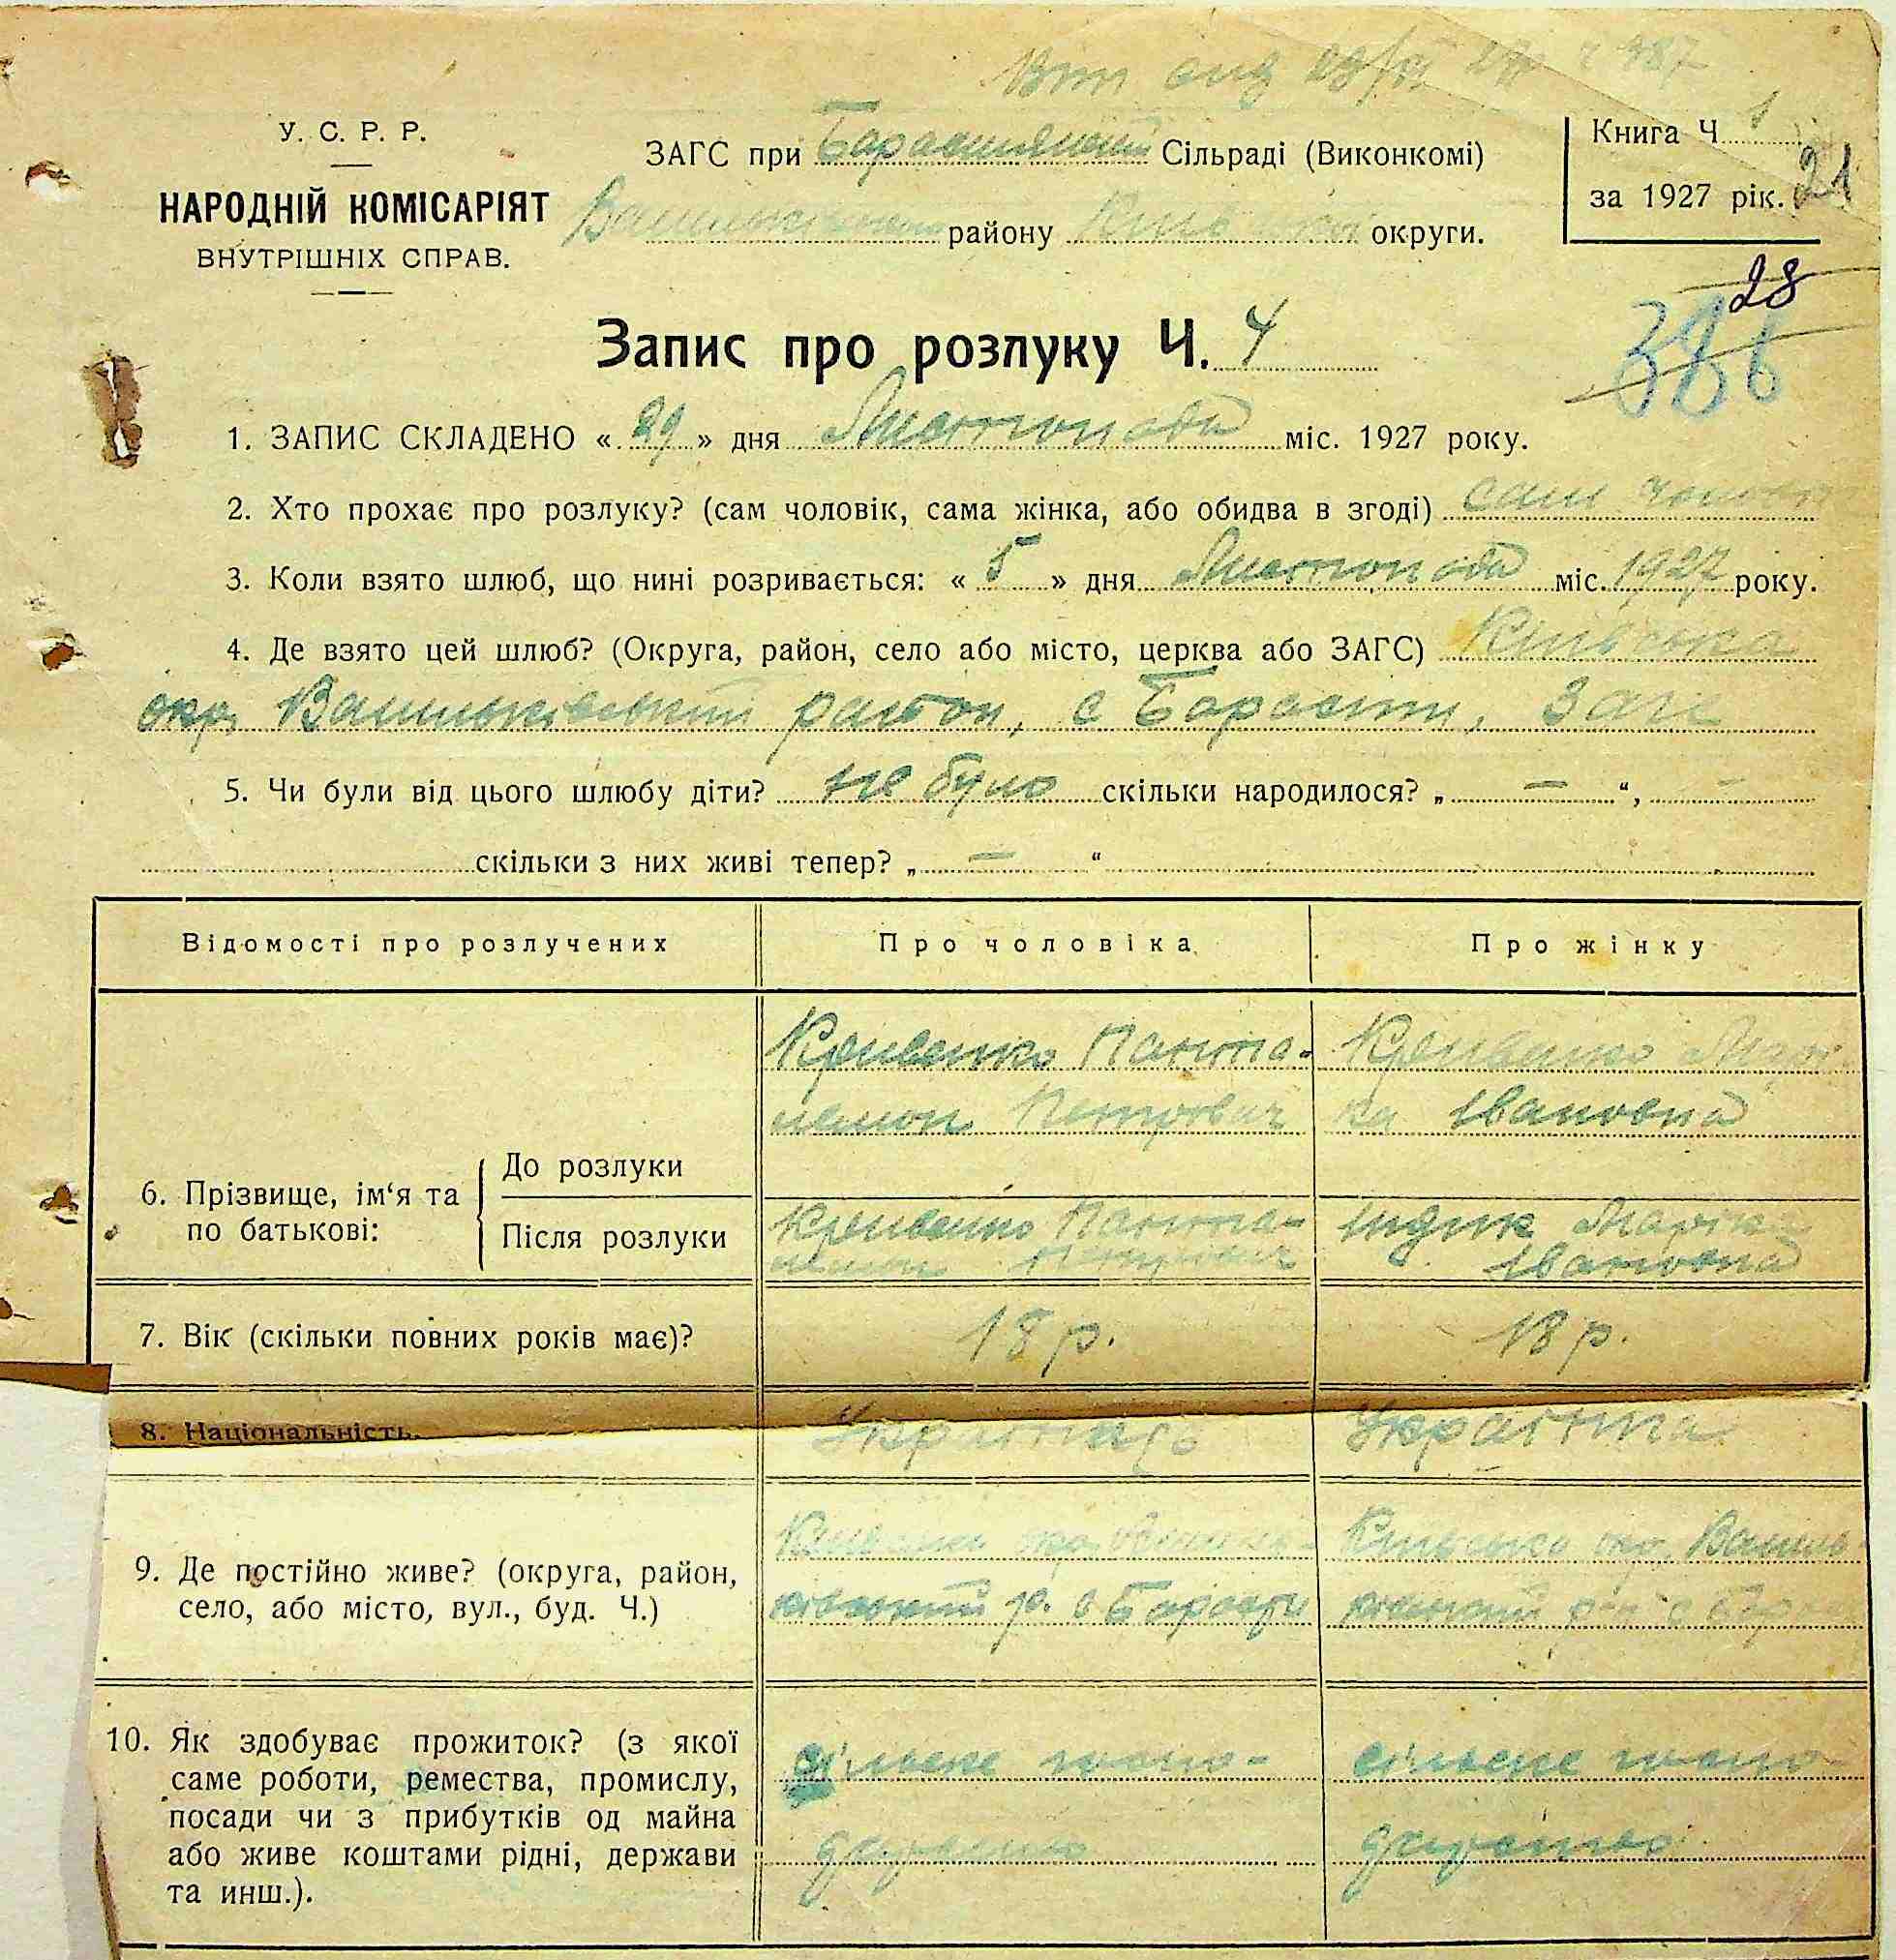 У. С. Р. Р.
НАРОДНІЙ КОМІСАРІЯТ
ВНУТРІШНІХ СПРАВ.
ЗАГС при Барахтянській Сільраді (Виконкомі)
Васильківськ району Київської округи.
Книга Ч. 1
за 1927 рік. 21
28
386
Запис про розлуку Ч. 4
1. ЗАПИС СКЛАДЕНО « 29 » дня Листопада міс. 1927 року.
2. Хто прохає про розлуку? (сам чоловік, сама жінка, або обидва в згоді) сам чоловік
3. Коли взято шлюб, що нині розривається: « 5 » дня Листопада міс. 1927 року.
4. Де взято цей шлюб? (Округа, район, село або місто, церква або ЗАГС) Київська
окр. Васильківський район, с Барахти, Загс
5. Чи були від цього шлюбу діти? не було скільки народилося? „ — “, —
скільки з них живі тепер? „ — “
Відомості про розлучених Про чоловіка Про жінку
6. Прізвище, ім‘я та по батькові:
До розлуки
Кривенко Панте-
лемон Петрович
Кривенко
ка Івановна
Після розлуки
Кривенко Панте-
лемон Петрович
Індик Марійка
Івановна
7. Вік (скільки повних років має)? 18 р. 18 р.
8. Національність. Українець Українка
9. Де постійно живе? (округа, район,
село, або місто, вул., буд. Ч.)
Київська окр. Василь-
ківський р. с Барахти
Київська окр. Василь-
ківський р-н с Барах
10. Як здобуває прожиток? (з якої
саме роботи, ремества, промислу,
посади чи з прибутків од майна
або живе коштами рідні, держави
та инш.).
сільске госпо-
дарство
сільске госпо-
дарство